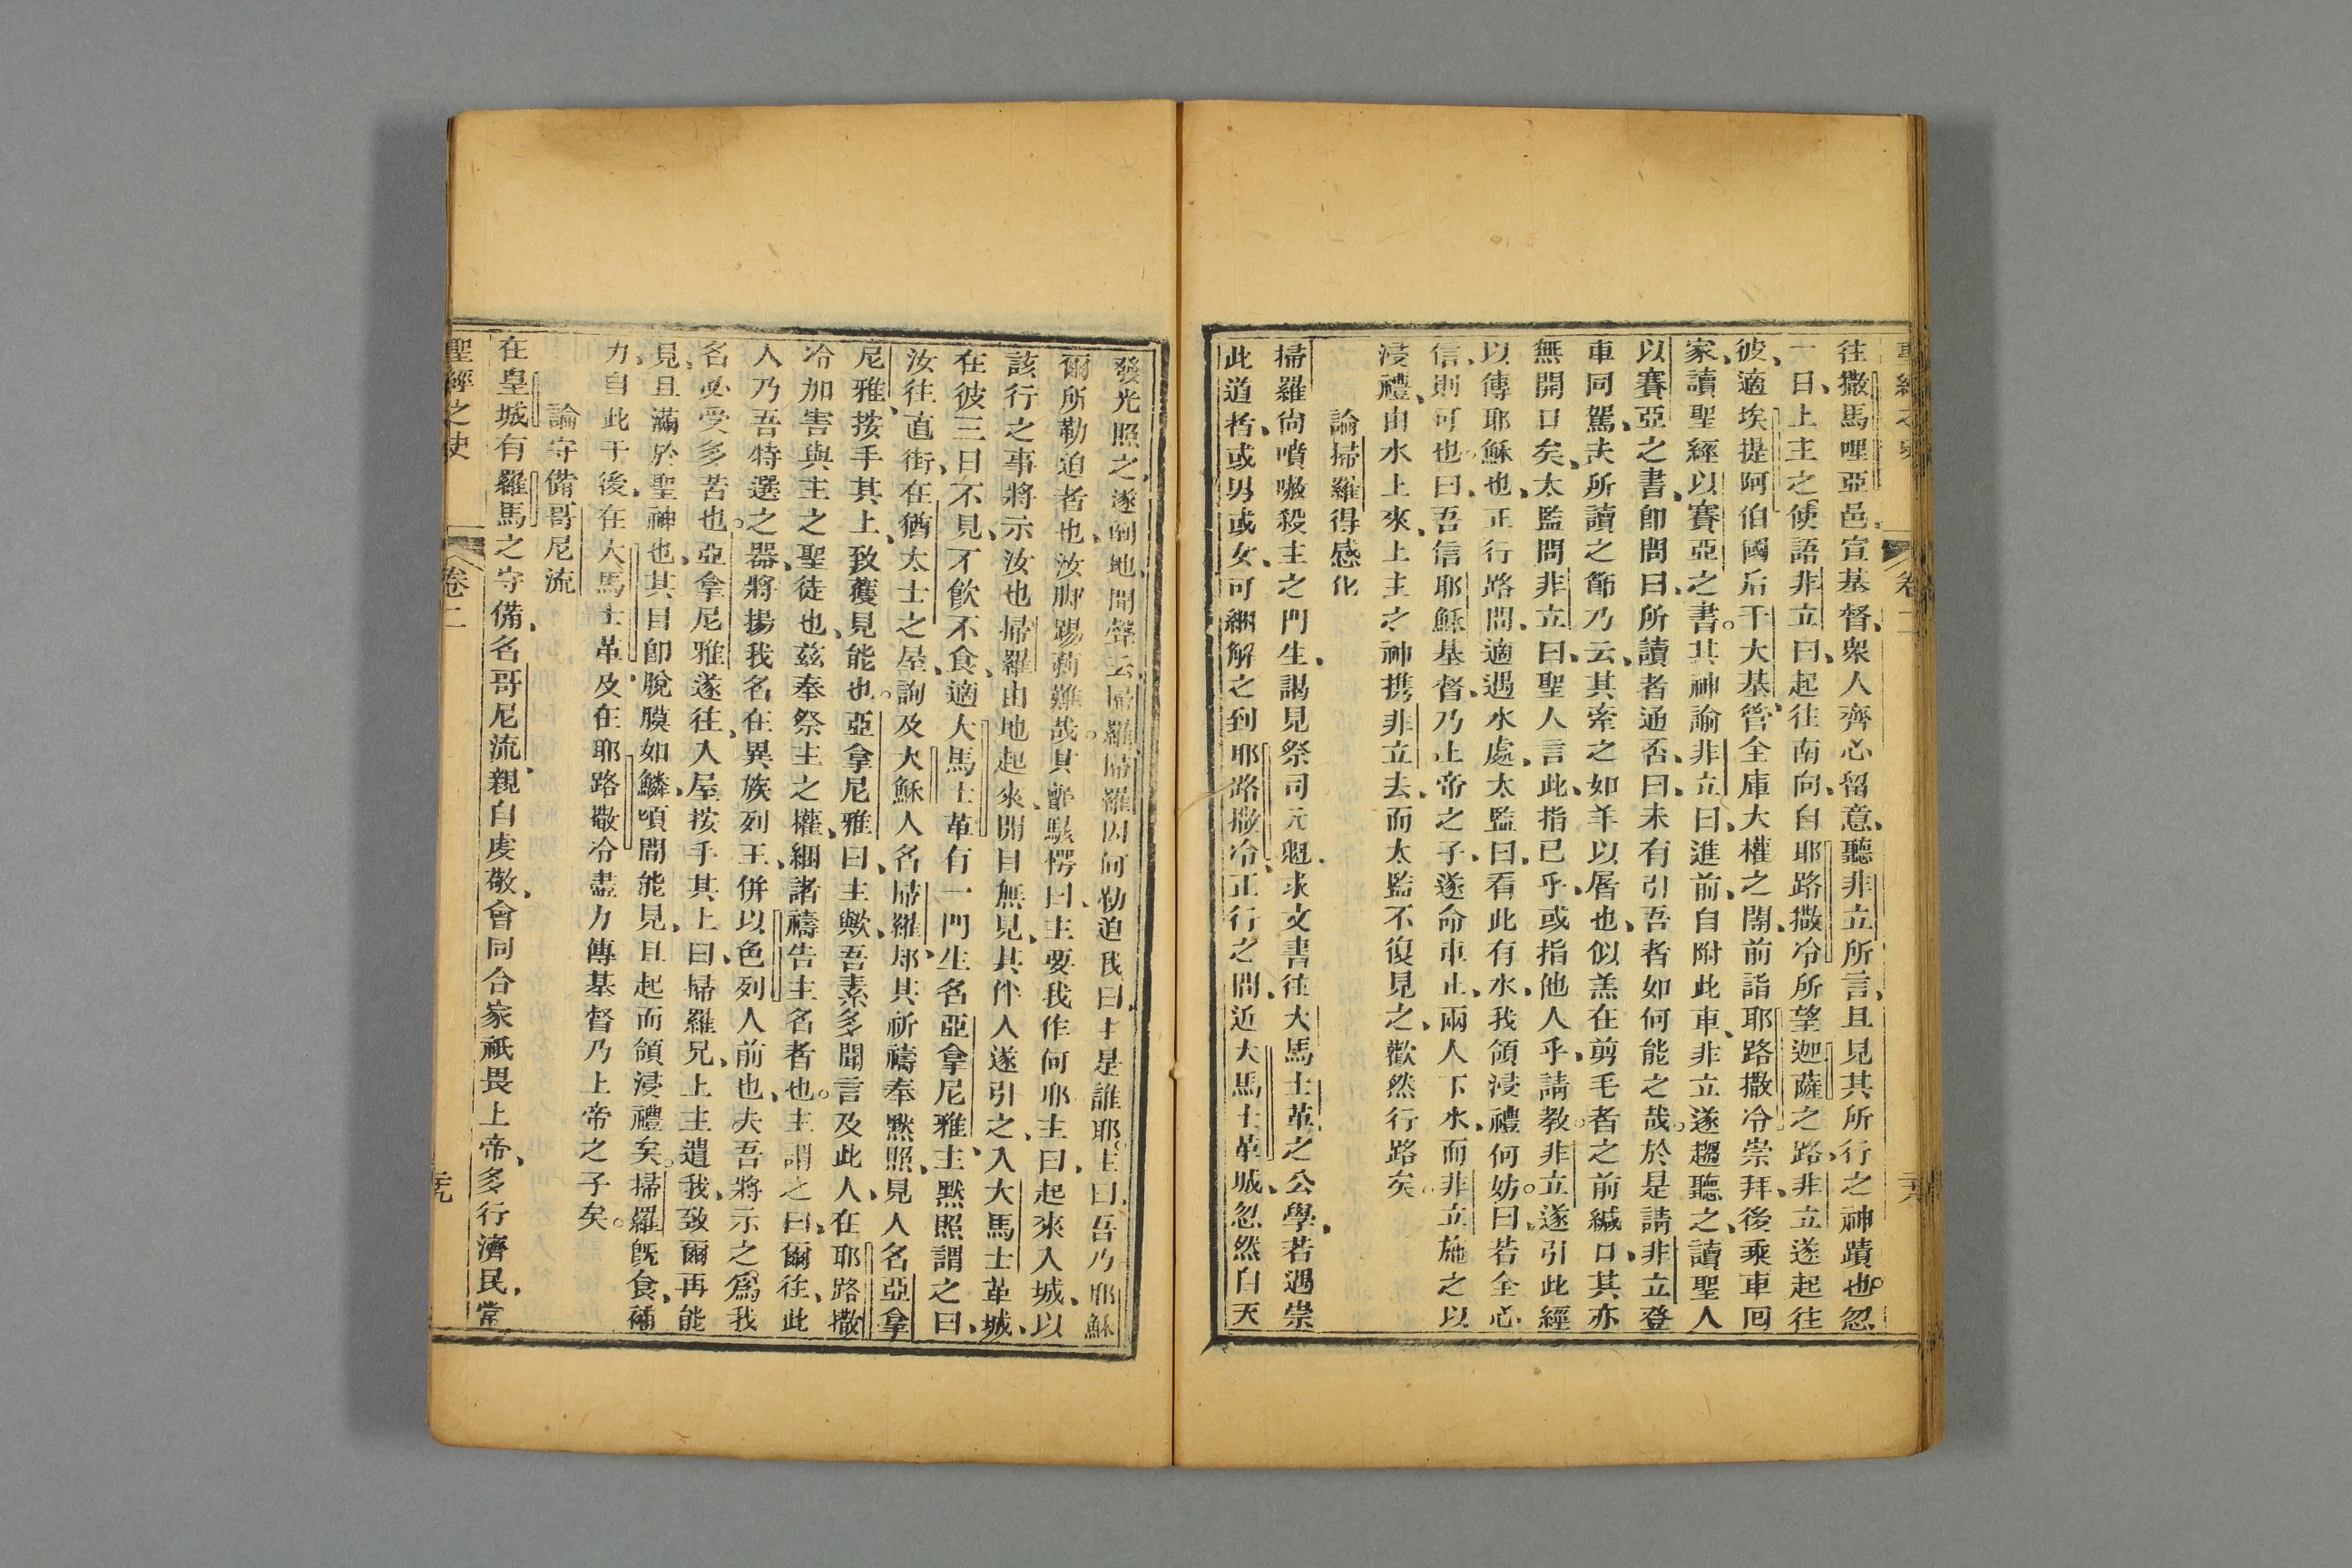 往撒馬哩亞邑、宣基督、衆人齊心留意、聽非立所言、且見其所行之神蹟也。忽
一日、上主之使語非立曰、起往南向、自耶路撒冷所望迦薩之路、非立遂起往
彼、適埃提阿伯國后干大基、管全庫大權之閹、前詣耶路撒冷崇拜、後乘車回
家、讀聖經以賽亞之書。其神諭非立曰、進前、自附此車、非立遂趨聽之、讀聖人
以賽亞之書、卽問曰、所讀者通否、曰、未有引吾者如何能之哉。於是請非立登
車同駕、夫所讀之節乃云、其牽之如羊以屠也、似羔在剪毛者之前緘口、其亦
無開口矣、太監問非立曰、聖人言此、指已乎、或指他人乎、請教。非立遂引此經
以傳耶穌也、正行路間、適遇水處、太監曰、看此有水、我領浸禮何妨。曰、若全心
信、則可也。曰、吾信耶穌基督、乃上帝之子、遂命車止、兩人下水、而非立施之以
浸禮、由水上來、上主之神携非立去、而太監不復見之、歡然行路矣。
論掃羅得感化
掃羅尙噴嗷殺主之門生、謁見祭司元魁、求文書往大馬士革之公學、若遇崇
此道者、或男或女、可綑解之到耶路撒冷、正行之間、近大馬士革城、忽然自天
發光照之、遂倒地、聞聲云、掃羅、掃羅因何勒迫我、曰、主是誰耶、主曰、吾乃耶穌
爾所勒迫者也、汝脚踢莿難哉。其顫駭愕曰、主要我作何耶、主曰、起來入城、以
該行之事將示汝也、掃羅由地起來、開目無見、其伴人遂引之、入大馬士革城、
在彼三日不見、不飲不食、適大馬士革有一門生名亞拿尼雅、主默照謂之曰、
汝往直街、在猶太士之屋、詢及大穌人名掃羅、那其祈禱奉默照、見人名亞拿
尼雅、按手其上、致獲見能也。亞拿尼雅曰、主歟、吾素多聞言及此人、在耶路撒
冷加害與主之聖徒也、茲奉祭主之權、綑諸禱告主名者也。主謂之曰、爾往、此
人乃吾特選之器、將揚我名在異族列王、併以色列人前也、夫吾將示之爲我
名必受多苦也。亞拿尼雅遂往、入屋按手其上曰、掃羅兄、上主遣我、致爾再能
見、且滿於聖神也、其目卽脫膜如鱗、頃間能見、且起而領浸禮矣。掃羅旣食、補
力、自此于後、在大馬士革、及在耶路撒冷盡力傳基督乃上帝之子矣。
論守備哥尼流
在皇城有羅馬之守備、名哥尼流、親自虔敬、會同合家祇畏上帝、多行濟民、常
聖經之史
卷二